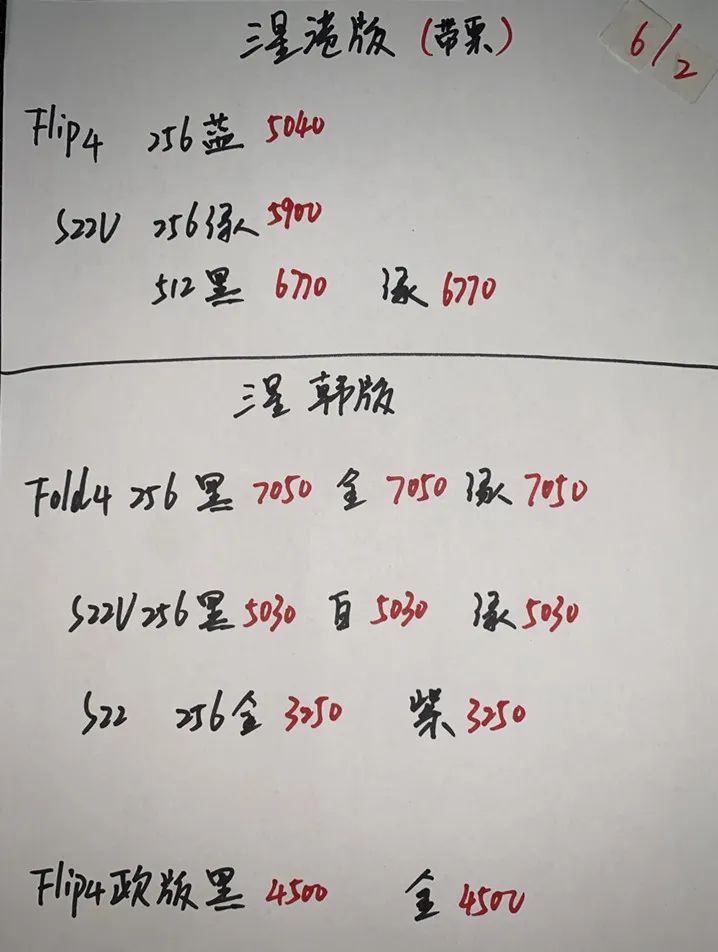 三星港版（带票）
6/2
Flip4 256蓝 5040
S22U 256绿 5900
512黑 6770 绿 6770
三星 韩版
Fold4 256 黑 7050 金 7050 绿 7050
S22U 256 黑 5030 白 5030 绿 5030
S22 256金 3250 紫 3250
Flip4欧版黑 4500 金 4500